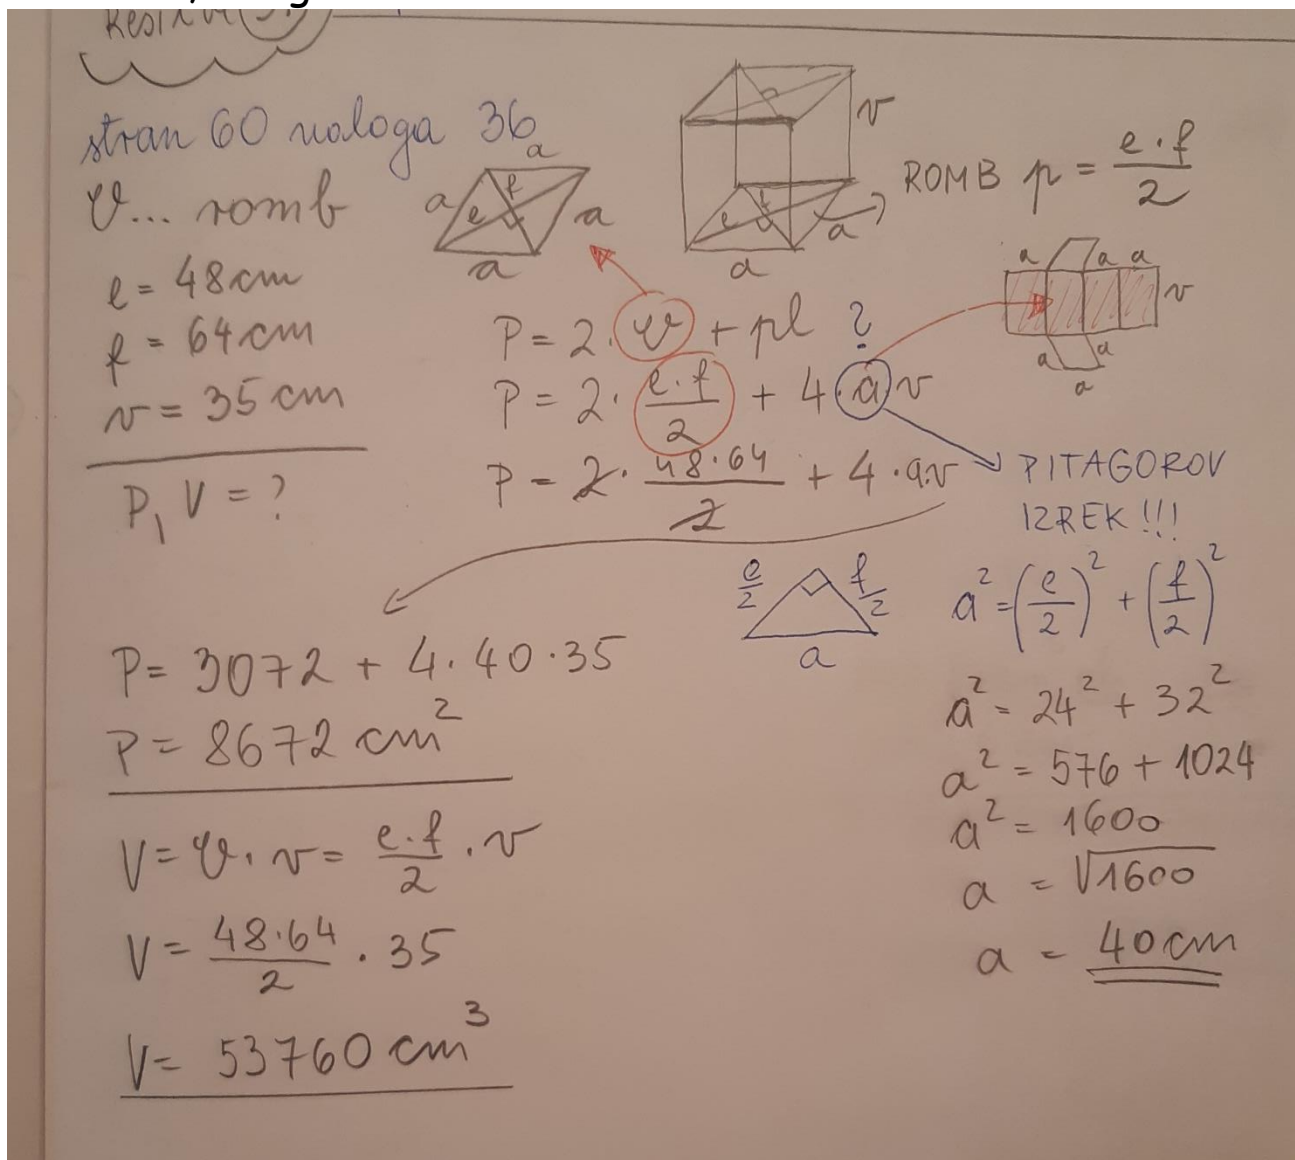 stran 60 naloga 36
O... romb
e = 48 cm
f = 64 cm
v = 35 cm
P, V = ?
a
a
e
f
a
a
v
e
f
a
a
ROMB p = e·f/2
a a a
v
a a
a
P = 2·O + pl ?
P = 2· e·f/2 + 4·a·v
P = 2· 48·64/2 + 4·a·v
PITAGOROV
IZREK !!!
e/2 f/2
a
a² = (e/2)² + (f/2)²
a² = 24² + 32²
a² = 576 + 1024
a² = 1600
a = √1600
a = 40 cm
P = 3072 + 4·40·35
P = 8672 cm²
V = O·v = e·f/2 · v
V = 48·64/2 · 35
V = 53760 cm³